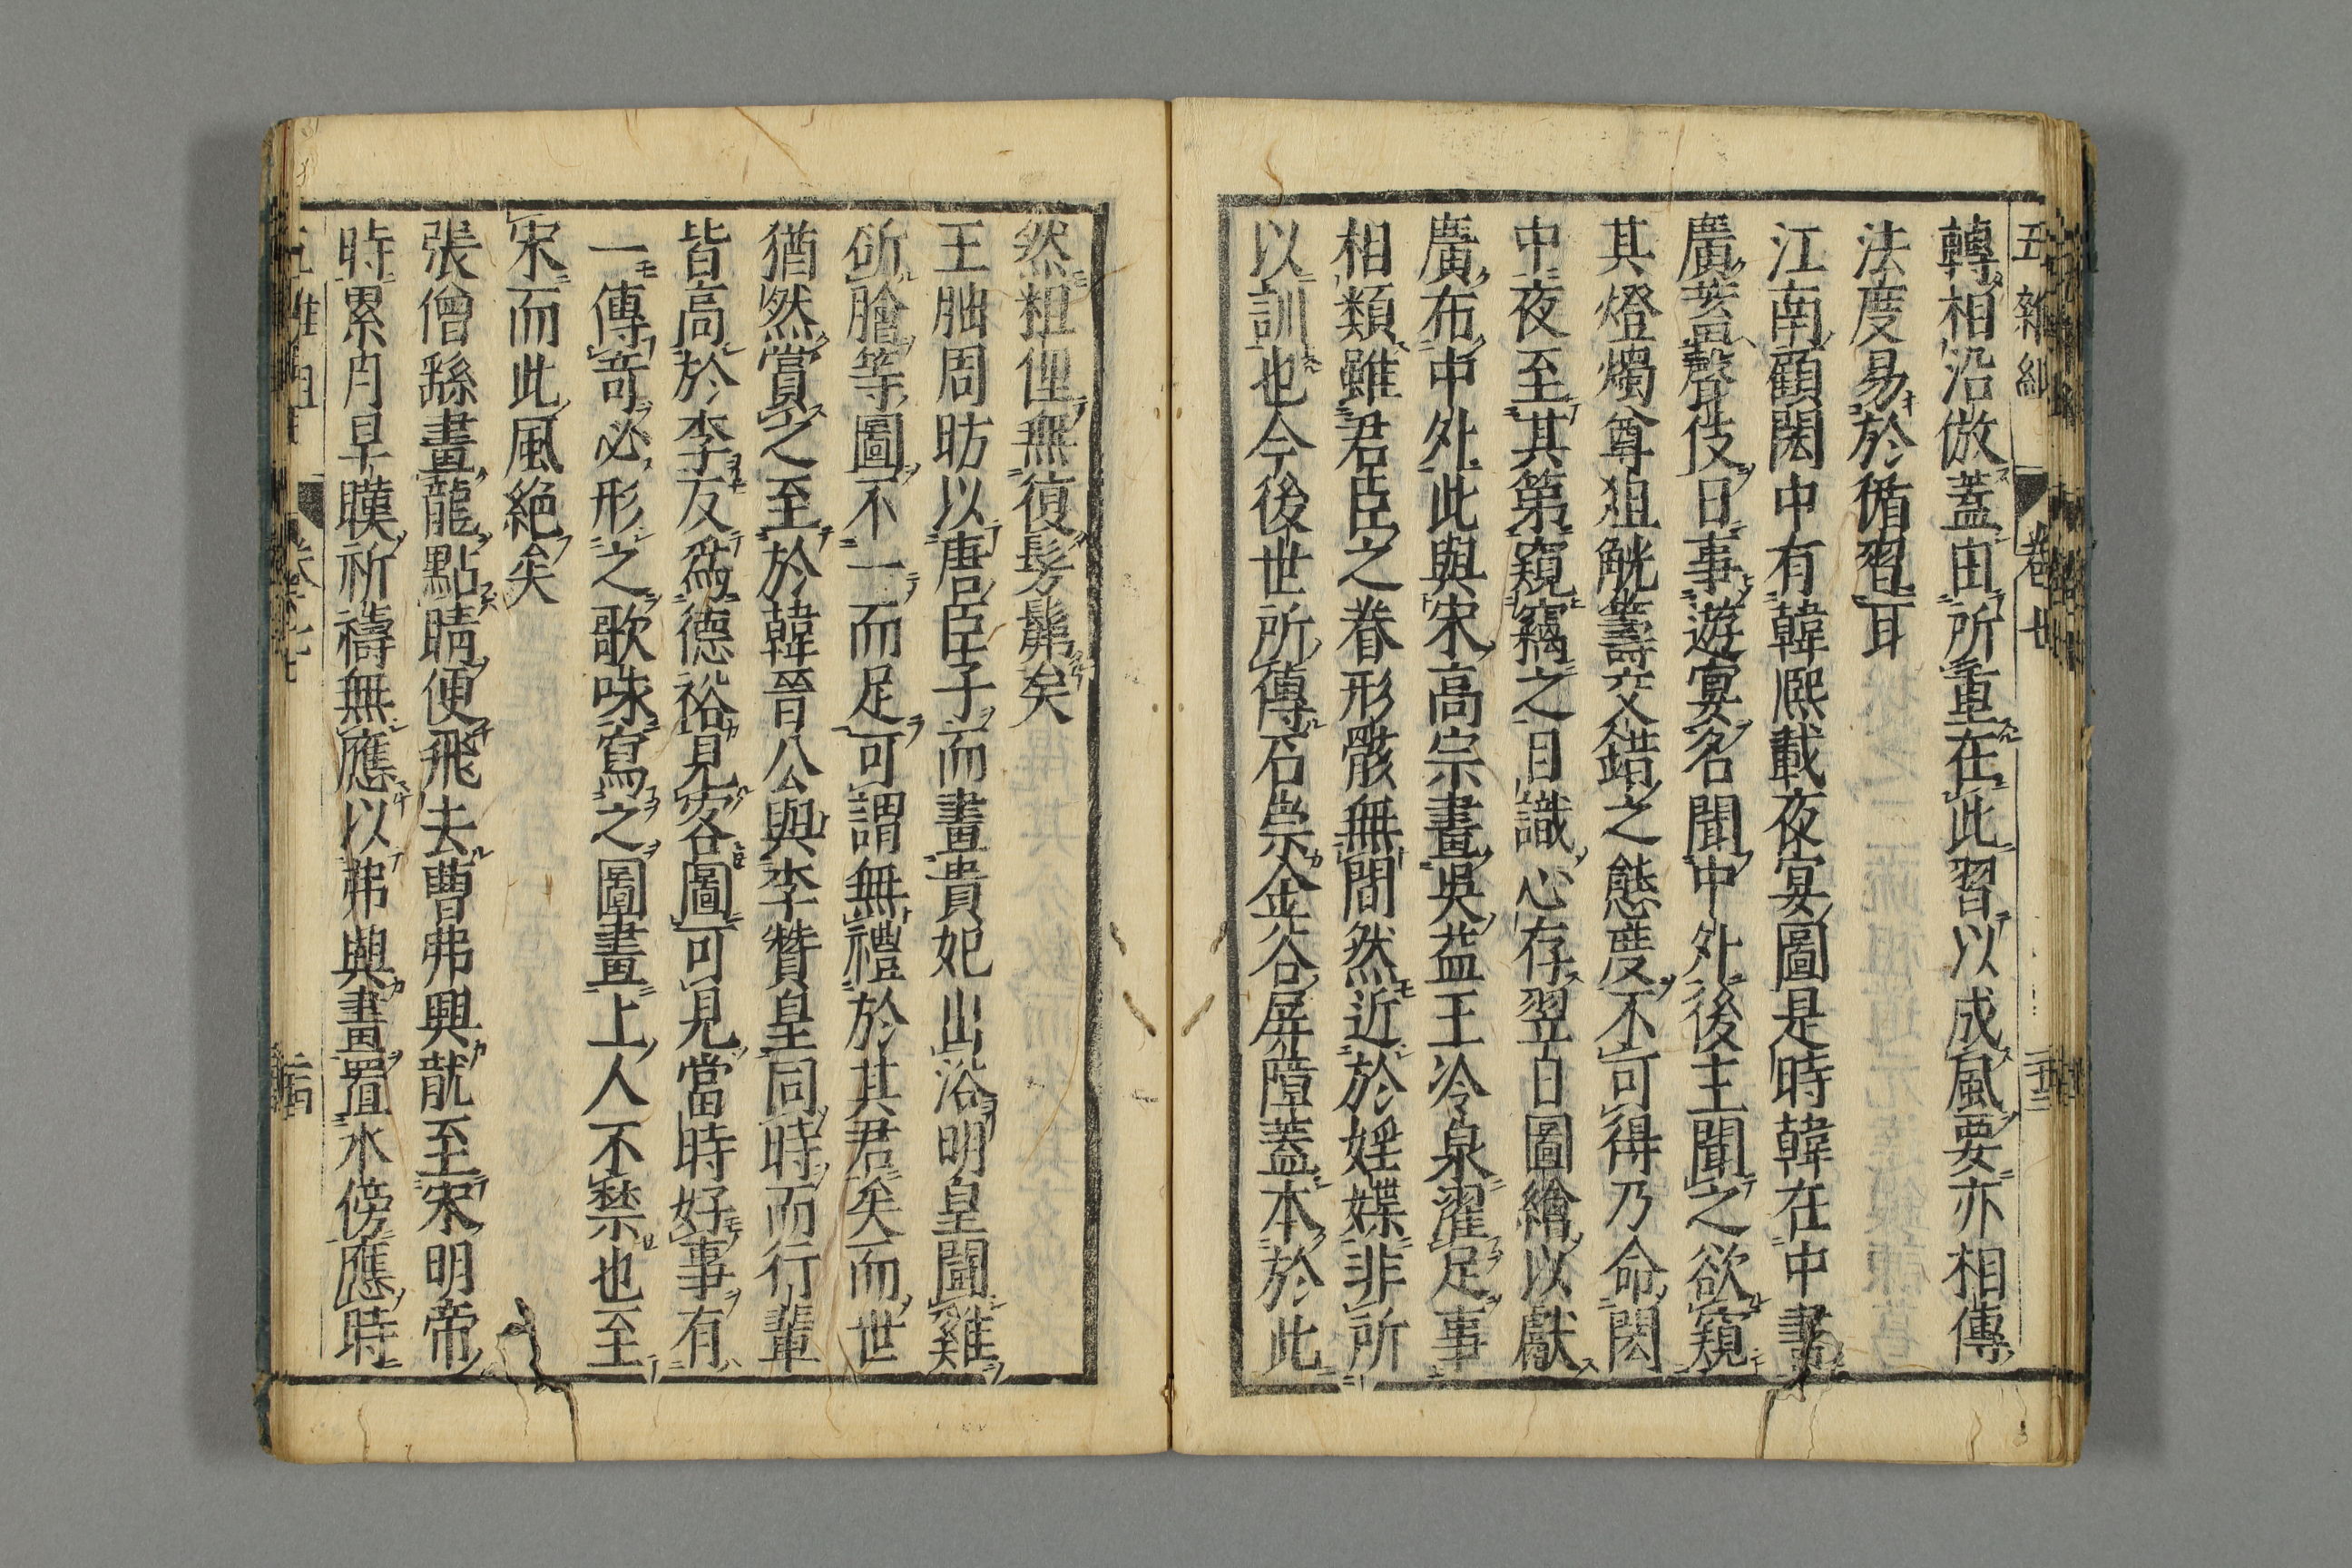 五雜組 卷七
轉相沿倣蓋由所重在此習以成風要亦相傳
法度易於循習耳
江南顧閎中有韓熙載夜宴圖是時韓在中書
廣蓄聲伎日事遊宴名聞中外後主聞之欲窺
其燈燭尊俎觥籌交錯之態度不可得乃命閎
中夜至其第窺竊之目識心存翌日圖繪以獻
廣布中外此與宋高宗畫吳益王冷泉濯足事
相類雖君臣之眷形骸無間然近於婬媟非所
以訓也今後世所傳石崇金谷屏障蓋本於此
然粗俚無復髣髴矣
王朏周昉以唐臣子而畫貴妃出浴明皇鬪雞
斫膾等圖不一而足可謂無禮於其君矣而世
猶然賞之至於韓晉公與李贊皇同時而行輩
皆高於李友爲德裕見客圖可見當時好事有
一傳奇必形之歌咏寫之圖畫上人不禁也至
宋而此風絕矣
張僧繇畫龍點睛便飛去曹弗興龍至宋明帝
時累月旱暵祈禱無應以弗興畫置水傍應時